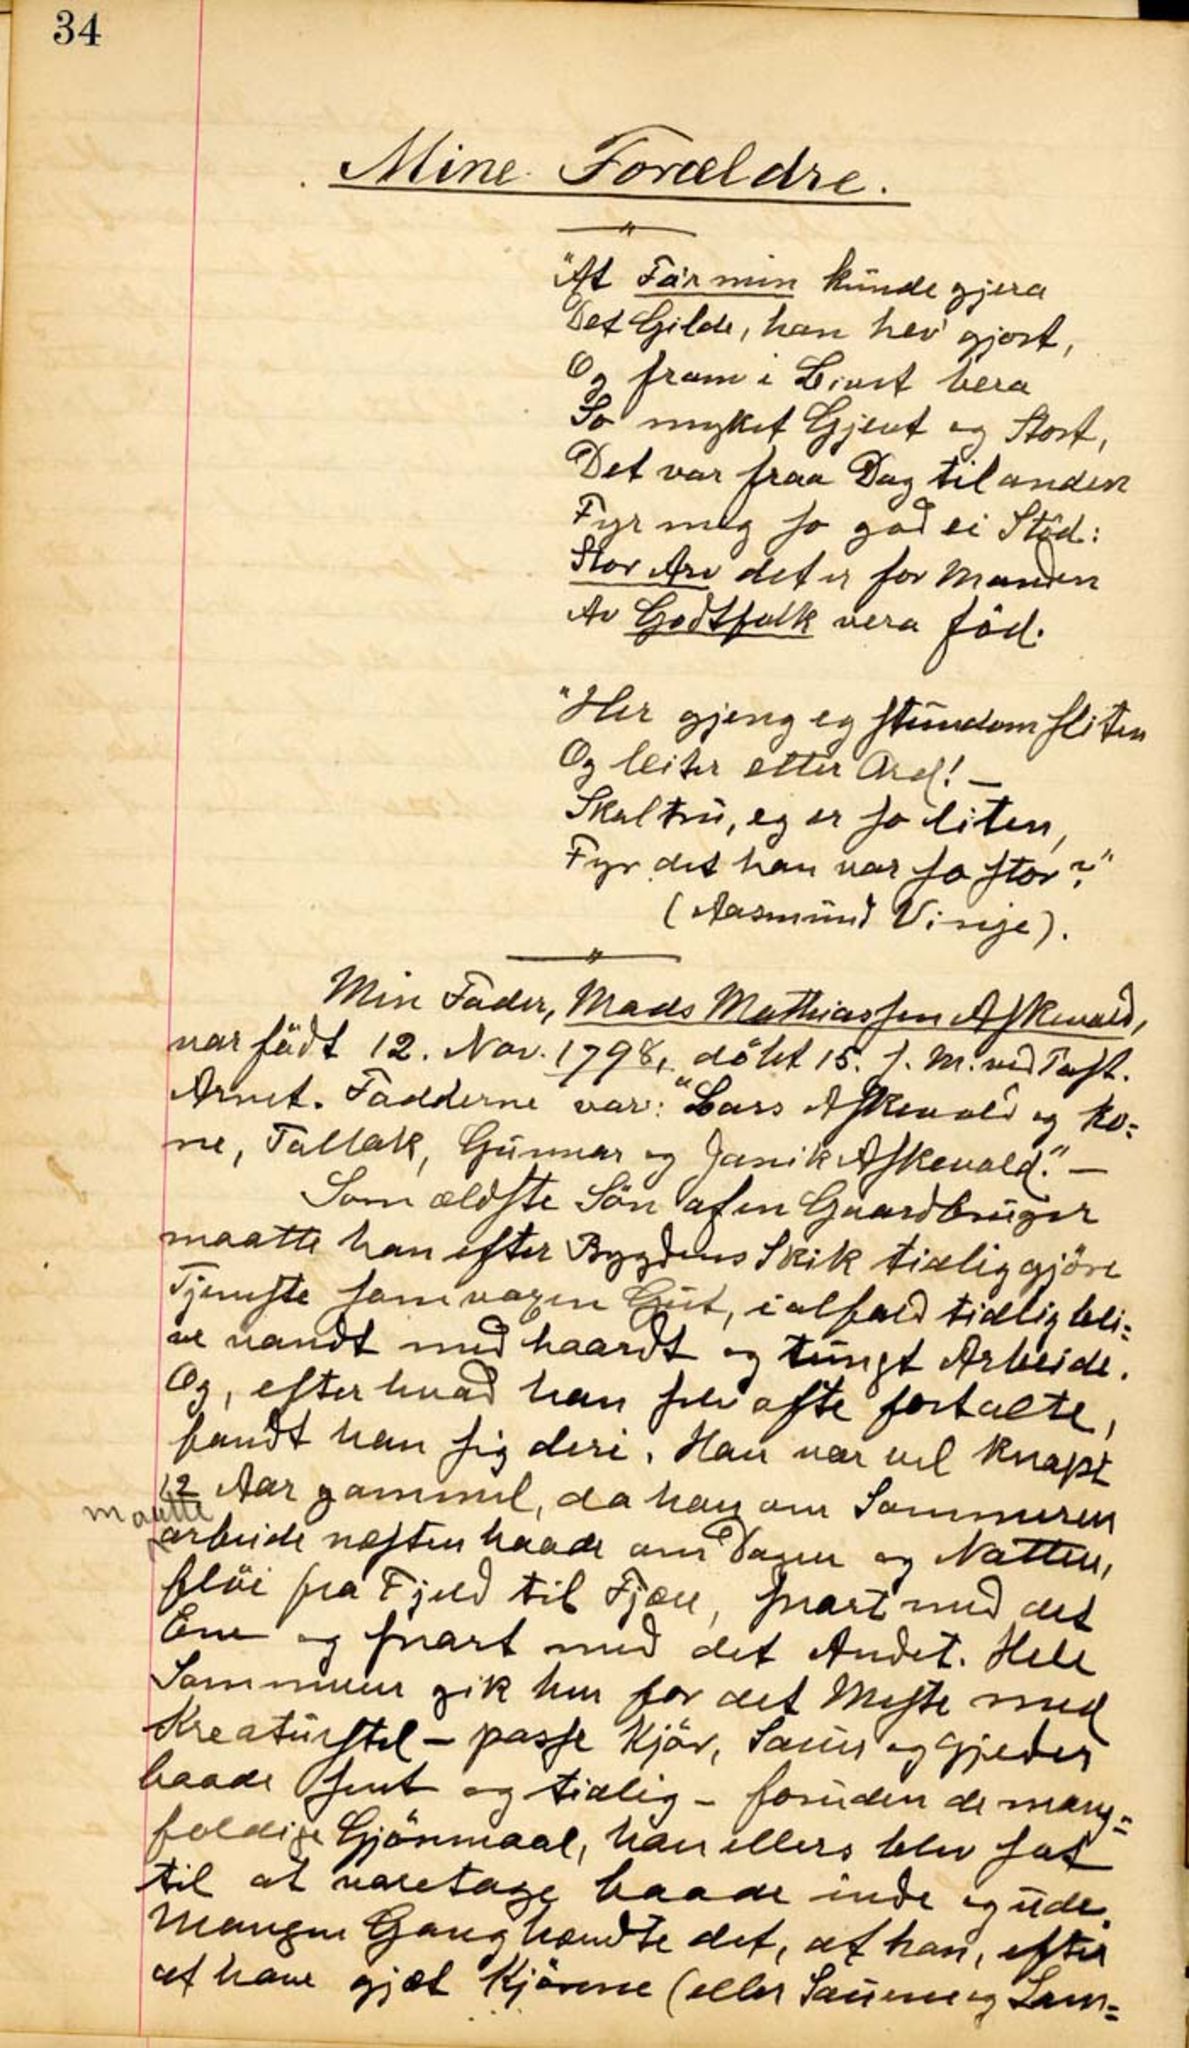 34
Mine Forældre.
"At Fa'r min kunde gjera
Det Gilde, han hev' gjort,
Og fram i Livet bera
So myket Gjevt og Stort,
Det var fraa Dag til anden
Fyr meg so god ei Stöd:
Stor Arv det er for Manden
Av Godtfolk vera föd.
"Her gjeng eg stundom sliten
Og leiter etter Ord! –
Skal tru, eg er so liten,
Fyr det han var so stor?"
(Aasmund Vinje).
Min Fader, Mads Mathiassen Askevold,
var födt 12. Nov. 1798, döbt 15. s. M. ved Past.
Arnet. Fadderne var: "Lars Askevold og Ko=
ne, Tallak, Gunnar og Janik Askevold." –
Som ældste Sön af en Gaardbruger
maatte han efter Bygdens Skik tidlig gjöre
Tjeneste som voxen Gut, ialfald tidlig bli=
ve vandt med haardt og tungt Arbeide.
Og, efter hvad han selv ofte fortalte,
fandt han sig deri. Han var vel knapt
12 Aar gammel, da han om Sommeren
maatte
arbeide næsten baade om Dagen og Natten,
flöi fra Fjeld til Fjære, snart med det
Ene og snart med det Andet. Hele
Sommeren gik hen for det Meste med
Kreaturstel – passe Kjör, Sauer og Gjeder
baade sent og tidlig – foruden de mang=
foldige Gjöremaal, han ellers blev sat
til at varetage baade inde og ude.
Mangen Gang hændte det, at han, efter
at have gjæt Kjörene (eller Sauene og Lam=